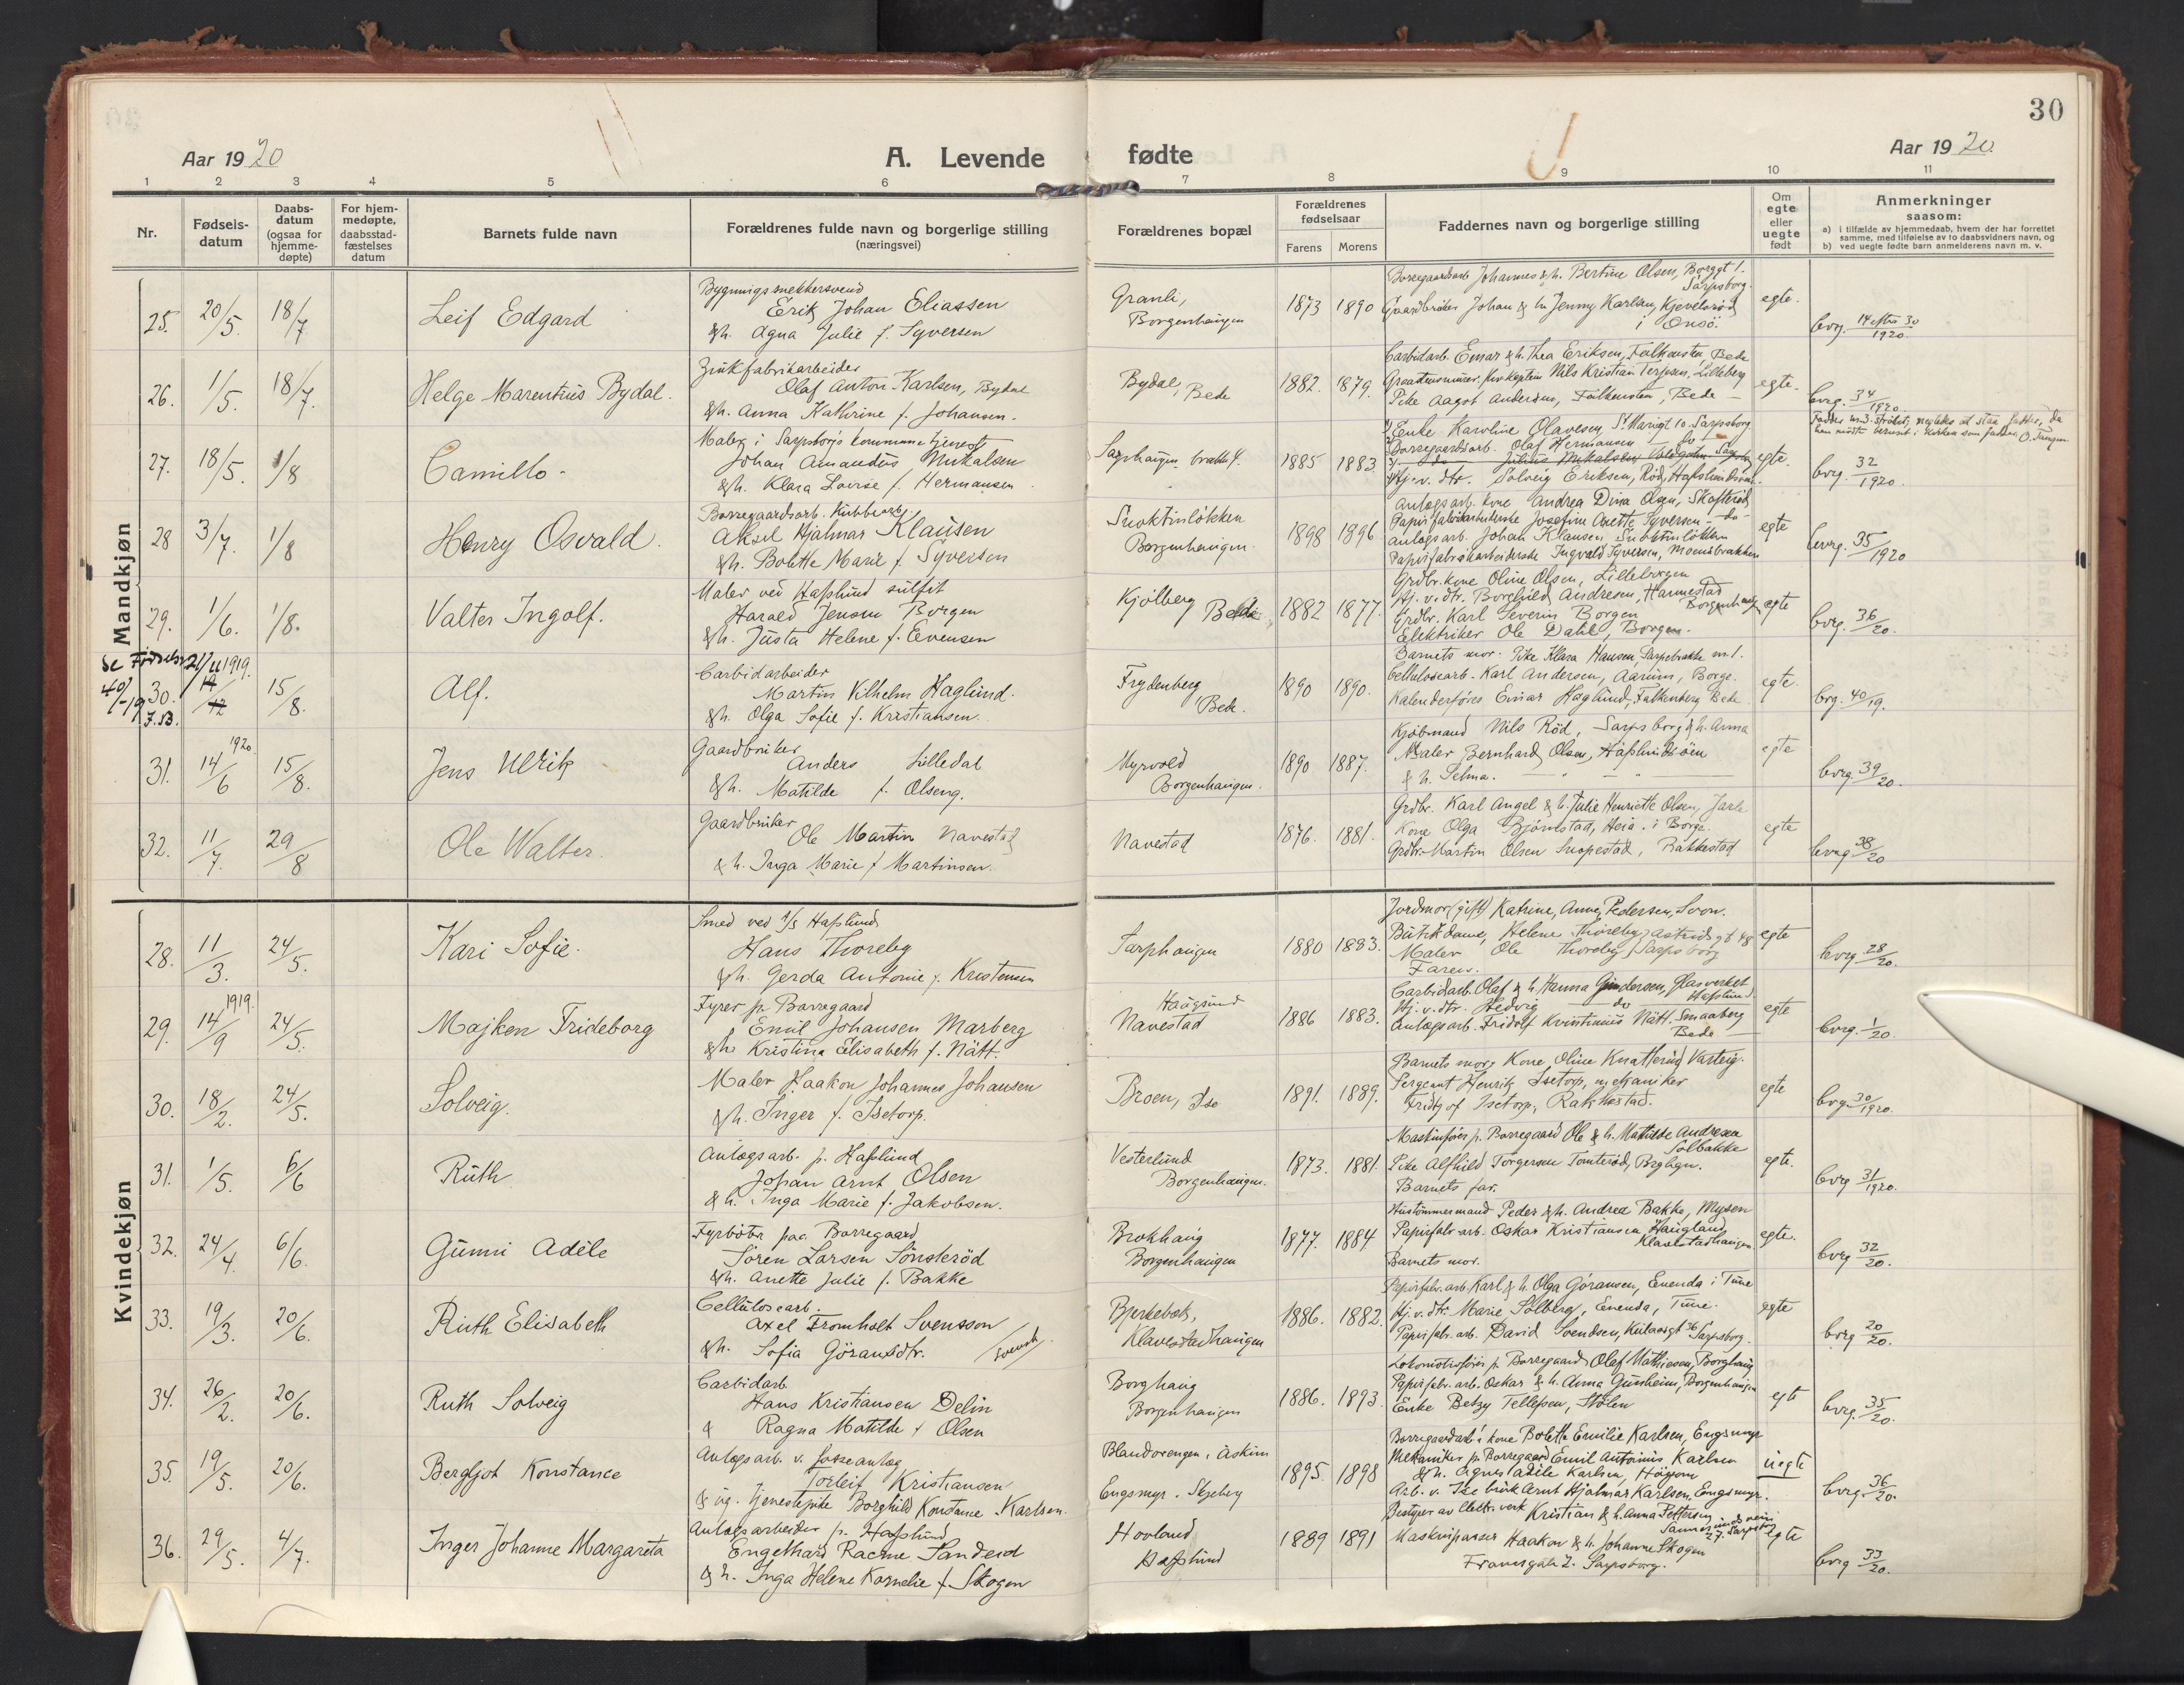 30
Aar 1920
A. Levende fødte
Aar 1920.
1 2 3 4 5 6 7 8 9 10 11
Nr.
Fødsels-datum
Daabs-datum (ogsaa for hjemme-døpte)
For hjem-medøpte, daabsstad-fæstelses datum
Barnets fulde navn
Forældrenes fulde navn og borgerlige stilling (næringsvei)
Forældrenes bopæl
Forældrenes fødselsaar
Farens Morens
Faddernes navn og borgerlige stilling
Om egte eller uegte født
Anmerkninger saasom:
a) i tilfælde av hjemmedaab, hvem der har forrettet samme, med tilføielse av to daabsvidners navn, og
b) ved uegte fødte barn anmelderens navn m. v.
Mandkjøn
25. 20/5. 18/7 Leif Edgard
Bygningssnekkersvend
Erik Johan Eliassen
&h. Agna Julie f. Syversen
Granli,
Borgenhaugen
1873 1890
Borregaardsarb. Johannes &h. Bertine Olsen, Borggt 1.
Sarpsborg.
Gaardbruker Johan & h. Jenny Karlsen, Kjevelsrød
i Onsö.
egte.
26. 1/5. 18/7. Helge Marentius Bydal.
Zinkfabrikarbeider
Olaf Anton Karlsen, Bydal
&h. Anna Kathrine f. Johansen.
Bydal, Bede
1882. 1879.
Carbidarb. Einar &h. Thea Eriksen, Falkensten, Bede
Nils Kristian Lilleberg
Pike Aagot Andersen, Falkensten, Bede
egte.
bevg. 34/1920.
27. 18/5. 1/8 Camillo.
Maler i Sarpsborgs kommunetjeneste
Johan Amandus Mikalsen
&h. Klara Lovise f. Hermansen
1885 1883
Enke Karoline Olavesen, St. Mariegt 10. Sarpsborg
Borregaardsarb. Olaf Hermansen do
Julius Mikalsen
Hj.v. dtr. Solveig Eriksen, Röd, Hafslundsöen.
egte.
bevg. 32/1920.
28 3/7. 1/8 Henry Osvald.
Borregaardsarb.
Aksel Hjalmar Klausen
&h. Bolette Marie f. Syversen
Borgenhaugen.
1898 1896
Anlagsarb. kone Andrea Dina Olsen, Skafteröd
Papirfabrikarbeiderske Josefine Anette Syversen - do -
Anlagsarb. Johan Klausen
Papirfabrikarbeiderske Ingvald Syversen, Moensbrakken
egte
bevg. 35/1920
29. 1/6. 1/8. Valter Ingolf.
Maler ved Hafslund sulfit
Harald Jensen Borgen
&h. Justa Helene f. Evensen
Kjölberg
Bede
1882 1877.
Grdbr. kone Oline Olsen, Lilleborgen
Hj.v.dtr. Borghild Andresen, Hannestad
Borgenhaugen
Grdbr. Karl Severin Borgen
Elektriker Ole Dahl, Borgen.
egte
bevg. 36/20.
Se Fødsels 40/-19 F.B.
30. 21/11 1919. 15/8. Alf.
Carbidarbeider
Martin Vilhelm Haglund.
&h. Olga Sofie f. Kristiansen.
Frydenberg
Bede.
1890 1890.
Barnets mor. Pike Klara Hansen, Sarpebakke nr. 1.
Cellulosearb. Karl Andersen, Aarum, Borge.
Kalenderförer Einar Haglund, Falkenberg Bede
egte.
bvg. 40/19.
31. 1920. 14/6 15/8. Jens Ulrik
Gaardbruker
Anders Lilledal
&h. Matilde f. Olseng.
Myrvold
Borgenhaugen.
1890 1887.
Kjöbmand Nils Röd, Sarpsborg &h. Anna
Maler Bernhard Olsen, Hafslundsöen
& h. Selma.
egte
bevg. 39/20.
32. 11/7. 29/8 Ole Walter.
Gaardbruker
Ole Martin Navestad
& h. Inga Marie f Martinsen.
Navestad
1876. 1881.
Grdbr. Karl Angel & h. Julie Henriette Olsen,
Kone Olga Björnstad, Heia. i Borge.
Grdbr. Martin Olsen Snopestad, Rakkestad
egte
bevg 38/20
Kvindekjøn
28. 11/3. 24/5. Kari Sofie.
Smed ved A/S Hafslund
Hans Thoreby
&h. Gerda Antonie f. Kristensen
Sarphaugen
1880 1883.
Jordmor (gift) Katrine, Anne, Pedersen, Soon.
Butikdame, Helene Thoreby, Astridsgt 48
Maler Ole Thoreby, Sarpsborg
Faren.
egte
bevg 28/20.
29. 1919. 14/9 24/5. Majken Frideborg
Fyrer p. Borregaard
Emil Johansen Marberg
&h. Kristina Elisabeth f. Nätt.
Haugsund
Navestad
1886 1883.
Carbidarb. Olaf & h. Hanna Gundersen, Glasverket
Hafslund.
Hj.v.dtr. Hedvig do
Anlagsarb. Fridolf Kvintinius Nätt. Smaaberg
Bede
egte
bevg. 1/20.
30. 18/2. 24/5. Solveig.
Maler Haakon Johannes Johansen
&h. Inger f. Isetorp.
Broen, Ise
1891. 1889.
Barnets mor, Kone Oline Knatterud Varteig.
Sergeant Henrik Isetorp, mekaniker
Fridtjof Isetorp, Rakkestad.
egte
bvg. 30/1920.
31. 1/5. 6/6 Ruth
Anlagsarb. p. Hafslund
Johan Arnt Olsen
& h. Inga Marie f. Jakobsen.
Vesterlund
Borgenhaugen.
1873. 1881.
Maskinförer p. Borregaard Ole & h. Mathilde Andresen
Solbakke
Pike Alfhild Torgersen Tomteröd, Brghgn.
Barnets far.
egte.
bevg 31/1920.
32. 24/4. 6/6. Gunni Adèle
Fyrböter paa Borregaard
Sören Larsen Sönsteröd
&h. Anette Julie f. Bakke
Brokhaug
Borgenhaugen
1877. 1884
Hustömmermand Peder &h. Andrea Bakke, Mysen
Papirfabr. arb. Oskar Kristiansen Haugland
Klavestadhaugen
Barnets mor.
egte.
bevg 32/20.
33. 19/3. 20/6. Ruth Elisabeth
Cellulosearb.
Axel Fromholt Svensson
&h. Sofia Göransdtr. svensk.
Bjerkebæk,
Klavestadhaugen
1886. 1882.
Papirfabr. arb. Karl & h. Olga Göransen, Enenda i Tune
Hj.v. dtr. Marie Solberg, Enenda, Tune.
Papirfabr. arb. David Svendsen, Kulaasgt 36 Sarpsborg.
egte
bevg 20/20.
34. 26/2. 20/6. Ruth Solveig
Carbidarb.
Hans Kristiansen Delin
& Ragna Matilde f Olsen
Borghaug
Borgenhaugen
1886. 1893.
Lokomotivförer p. Borregaard Olaf Mathiesen, Borghaug
Papirfabr. arb. Oskar & h. Anna Gunheim, Borgenhaugen
Enke Betzy Tellefsen, Stölen
egte
bevg. 35/20.
35. 19/5. 20/6. Bergljot Konstance
Anlagsarb. v. fosseanlæg
Torleif Kristiansen
& ug. tjenestepike Borghild Konstance Karlsen.
Blandorengen, Askim
Engsmyr. Skjeberg
1895. 1898
Borregaardsarb. kone Bolette Emilie Karlsen, Engsmyr
Mekaniker p. Borregaard Emil Antonius Karlsen
&h. Agnes Adèle Karlsen,
Arb. v. Ise bruk Arnt Hjalmar Karlsen, Engsmyr.
uegte
bevg. 36/20.
36. 29/5. 4/7. Inger Johanne Margareta
Anlagsarbeider p. Hafslund
Engelhard Racine Sanderd
& h. Inga Helene Kornelie f. Skogen
Hovland
Hafslund
1889 1891
Bestyrer av Elektr. verk Kristian & h. Anna Pettersen
Maskinpasser Haakon & h. Johanne Skogen
Sarpsborg.
egte
bevg 33/20.